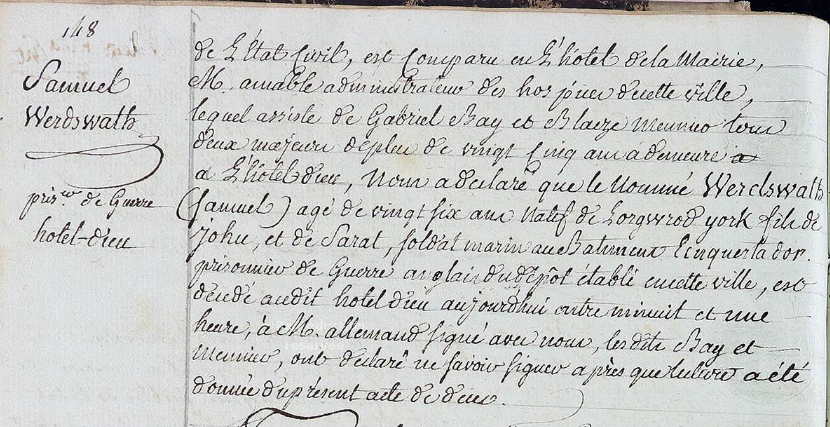 148
Samuel
Werdswath
pris.er de Guerre
hotel-dieu
de L'état Civil, est Comparu en L'hôtel de la Mairie,
M. amable administrateur des hospices de cette ville,
lequel assisté de Gabriel Bay et Blaize Meunier tous
deux majeurs de plus de vingt Cinq ans ademeure
a L'hôtel dieu, Nous a declaré que le Nommé Werdswath
(Samuel) agé de vingt six ans Natif de Lorgwrod york fils de
John, et de Sarat, soldat marin au Batiment L'inquestador.
prisonnier de Guerre anglais du dépôt établi en cette ville, est
décédé audit hotel dieu aujourd'hui entre minuit et une
heure, à M. allemand signé avec nous, les dits Bay et
Meunier, ont déclaré ne savoir signer après que lecture a été
donnée du présent acte de décès.